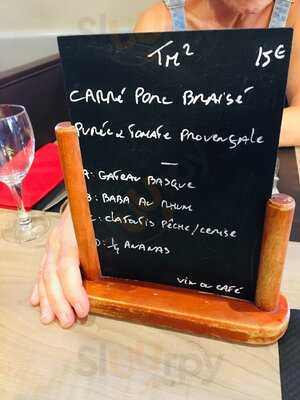 TM² 15€
CARRÉ PORC BRAISÉ
PURÉE & TOMATE PROVENÇALE
—
A: GATEAU BASQUE
B: BABA AU RHUM
C: CLAFOUTIS PÊCHE/CERISE
D: ¼ ANANAS
VIN OU CAFÉ
Sluurpy